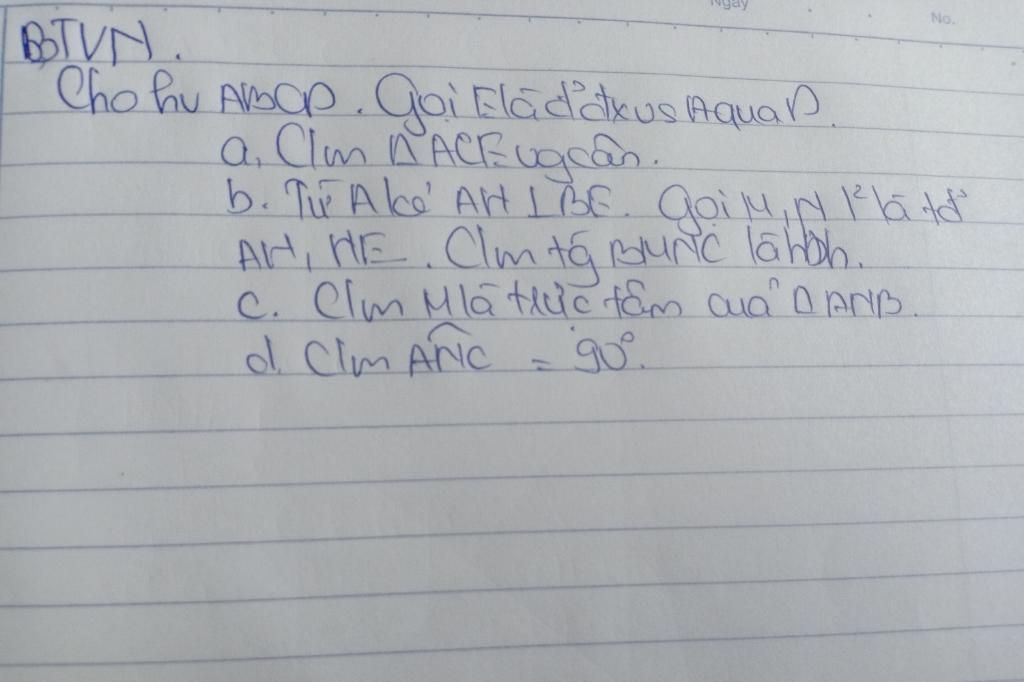 Ngày
No.
BTVN.
Cho hv ABCD. Gọi E là đ' đx vs A qua D.
a, C/m Δ ACE vg cân.
b. Từ A kẻ AH ⊥ BE. Gọi M, N l² là tđ'
AH, HE. C/m tg BMNC là hbh.
c. C/m M là trực tâm của Δ ANB.
d. C/m ANC = 90°.